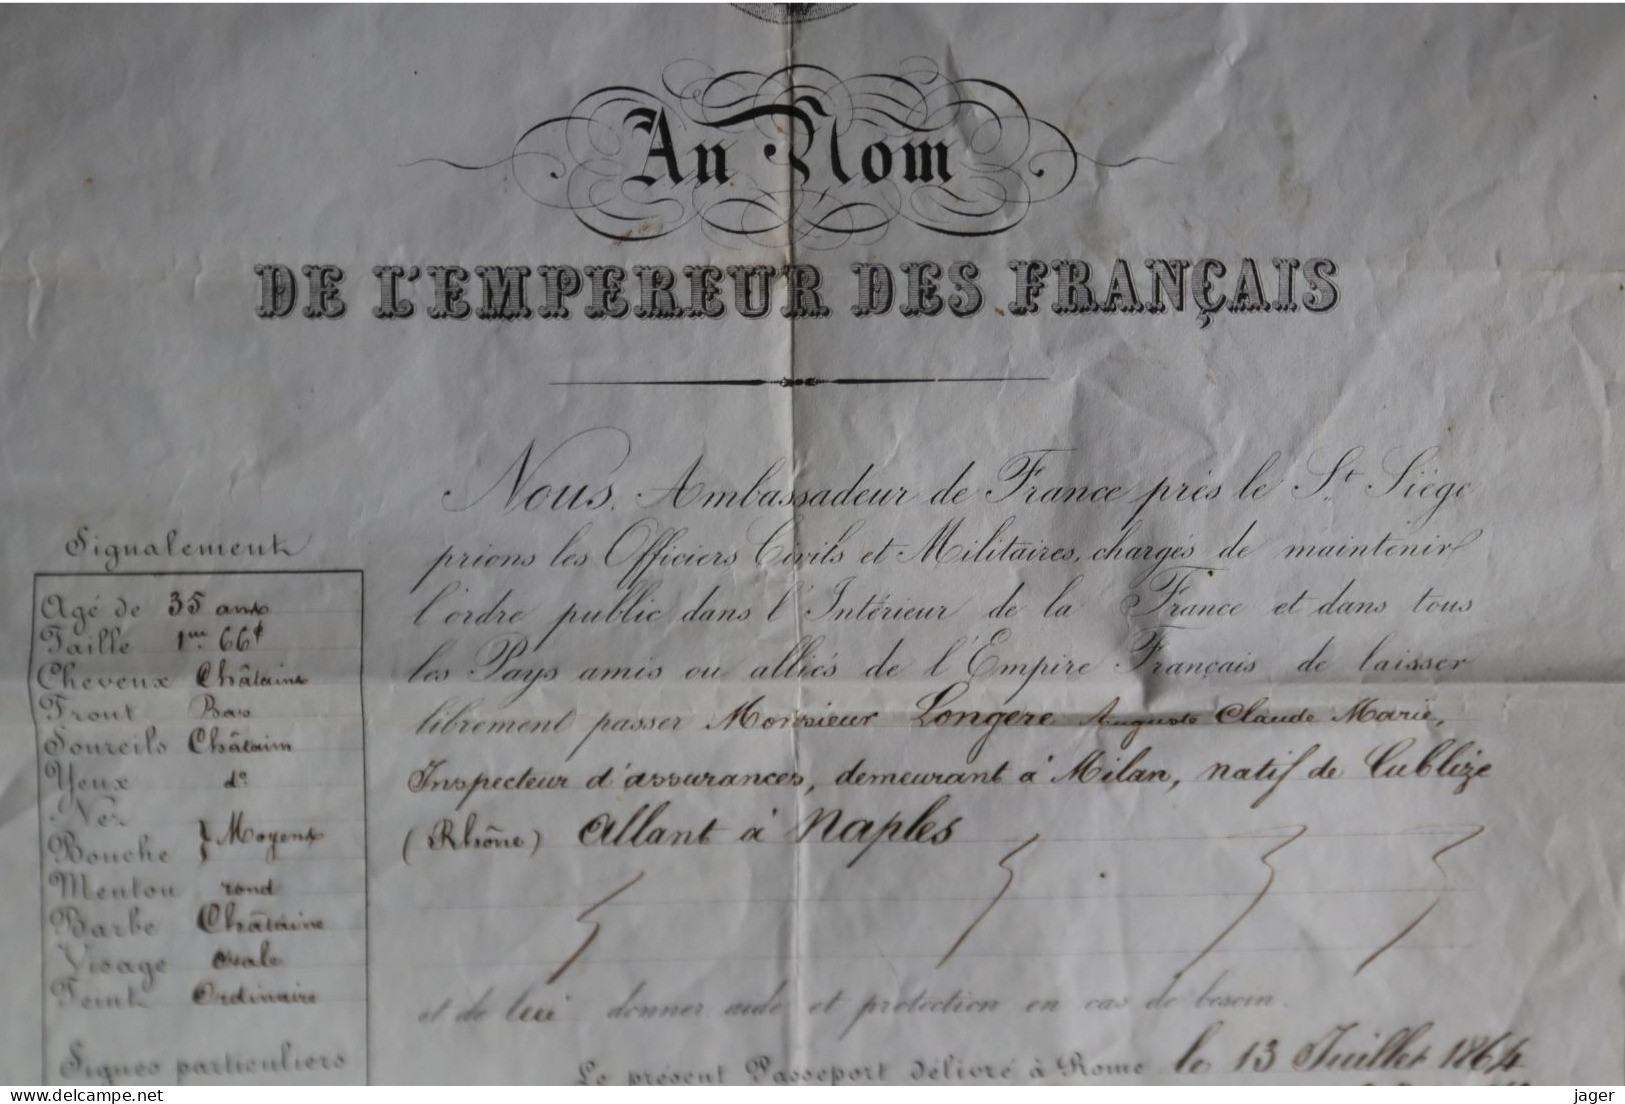 Au Nom
DE L'EMPEREUR DES FRANÇAIS
Nous, Ambassadeur de France près le St. Siège
prions les Officiers Civils et Militaires, chargés de maintenir
l'ordre public dans l'Intérieur de la France et dans tous
les Pays amis ou alliés de l'Empire Français de laisser
librement passer Monsieur Longere Auguste Claude Marie,
Inspecteur d'assurances, demeurant à Milan, natif de Cublize
(Rhône) Allant à Naples
et de lui donner aide et protection en cas de besoin.
Le présent Passeport délivré à Rome le 13 Juillet 1864
Signalement
Agé de 35 ans
Taille 1m. 66c
Cheveux Châtains
Front Bas
Sourcils Châtain
Yeux do
Nez
Bouche } Moyens
Menton rond
Barbe Châtaine
Visage ovale
Teint Ordinaire
Signes particuliers
delcampe.net
jager